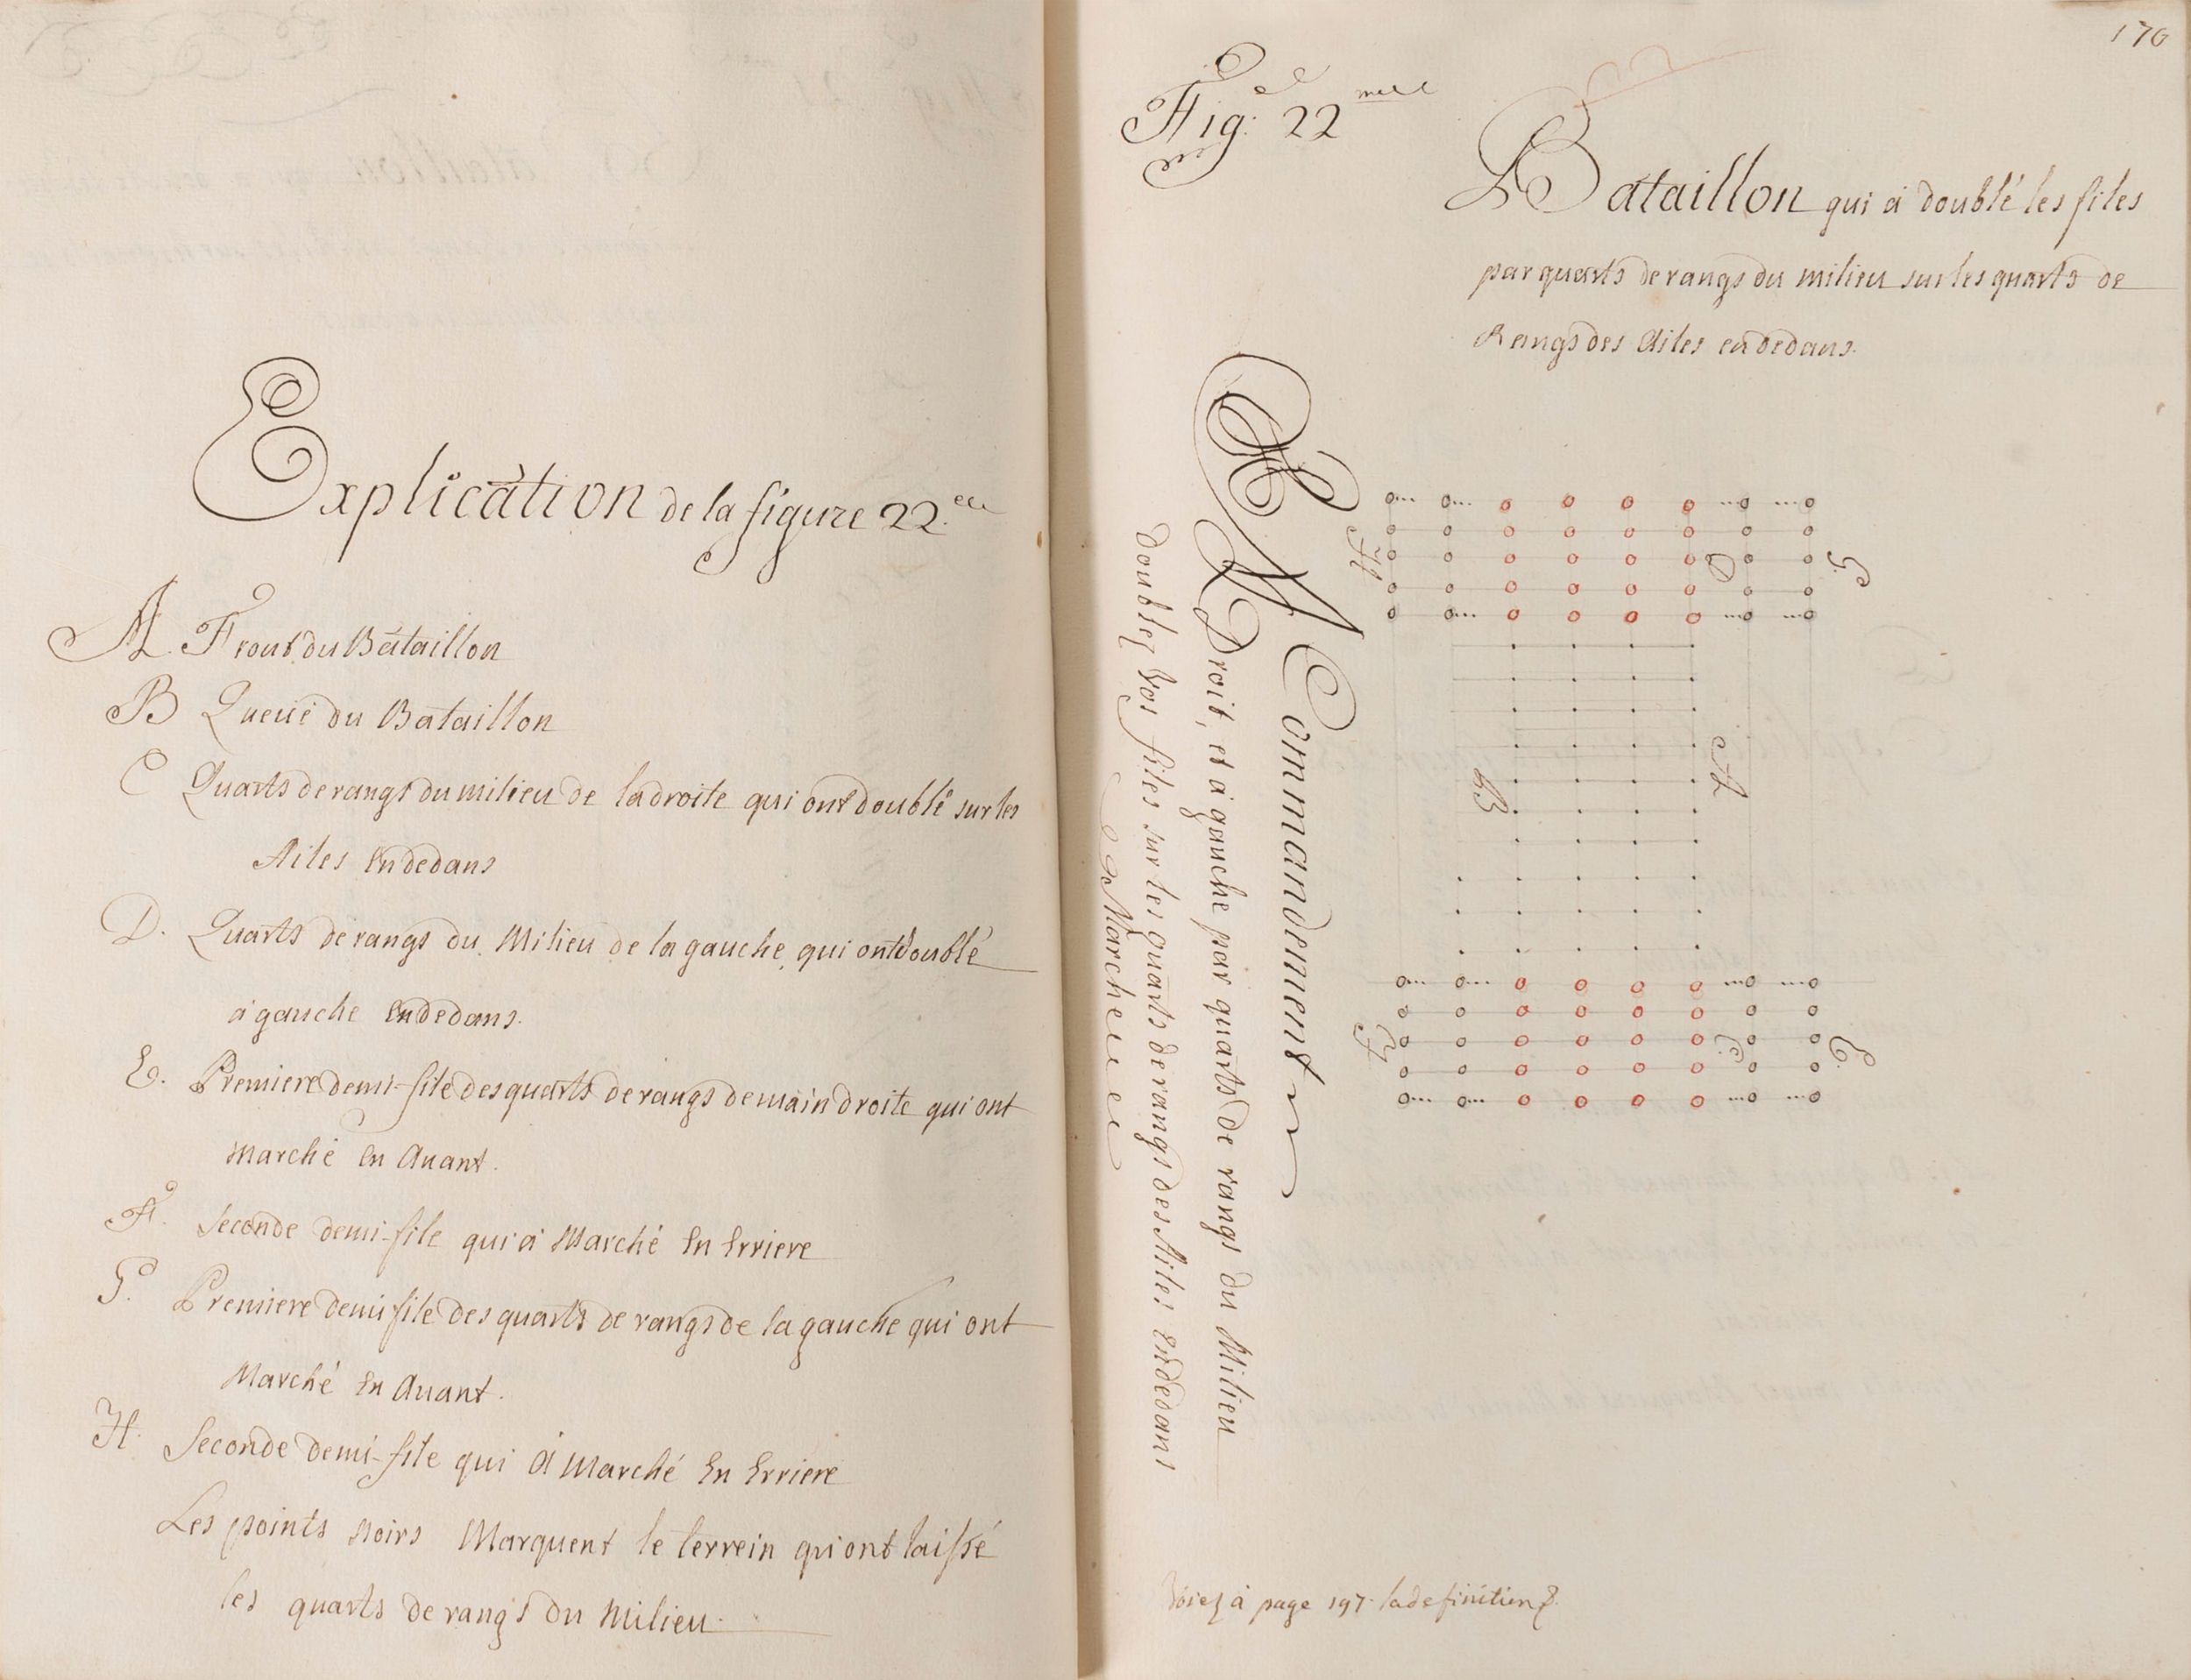 Explication de la figure 22.ee
A. Front du Bataillon
B Queüe du Bataillon
C Quarts de rangs du milieu de la droite qui ont doublé sur les
Ailes En dedans
D. Quarts de rangs du Milieu de la gauche, qui ont doublé
a gauche En dedans.
E. Premiere demi-file des quarts de rangs de main droite qui ont
Marché En Auant.
F. Seconde demi-file qui a Marché En Erriere
G. Premiere demi file des quarts de rangs de la gauche qui ont
Marché En Auant.
H. Seconde demi-file qui à Marché En Erriere
Les points Noirs Marquent le terrein qui ont laissé
les quarts de rangs du Milieu.
170
Fig.e 22me
Bataillon qui à doublé les files
par quarts de rangs du milieu sur les quarts de
Rangs des Ailes en dedans.
Commandement
A Droit, et à gauche par quarts de rangs du Milieu
doublez vos files sur les quarts de rangs des Ailes en dedans
Marche
H
D
G.
B
A
F
C.
E.
Voiez à page 197. la definition